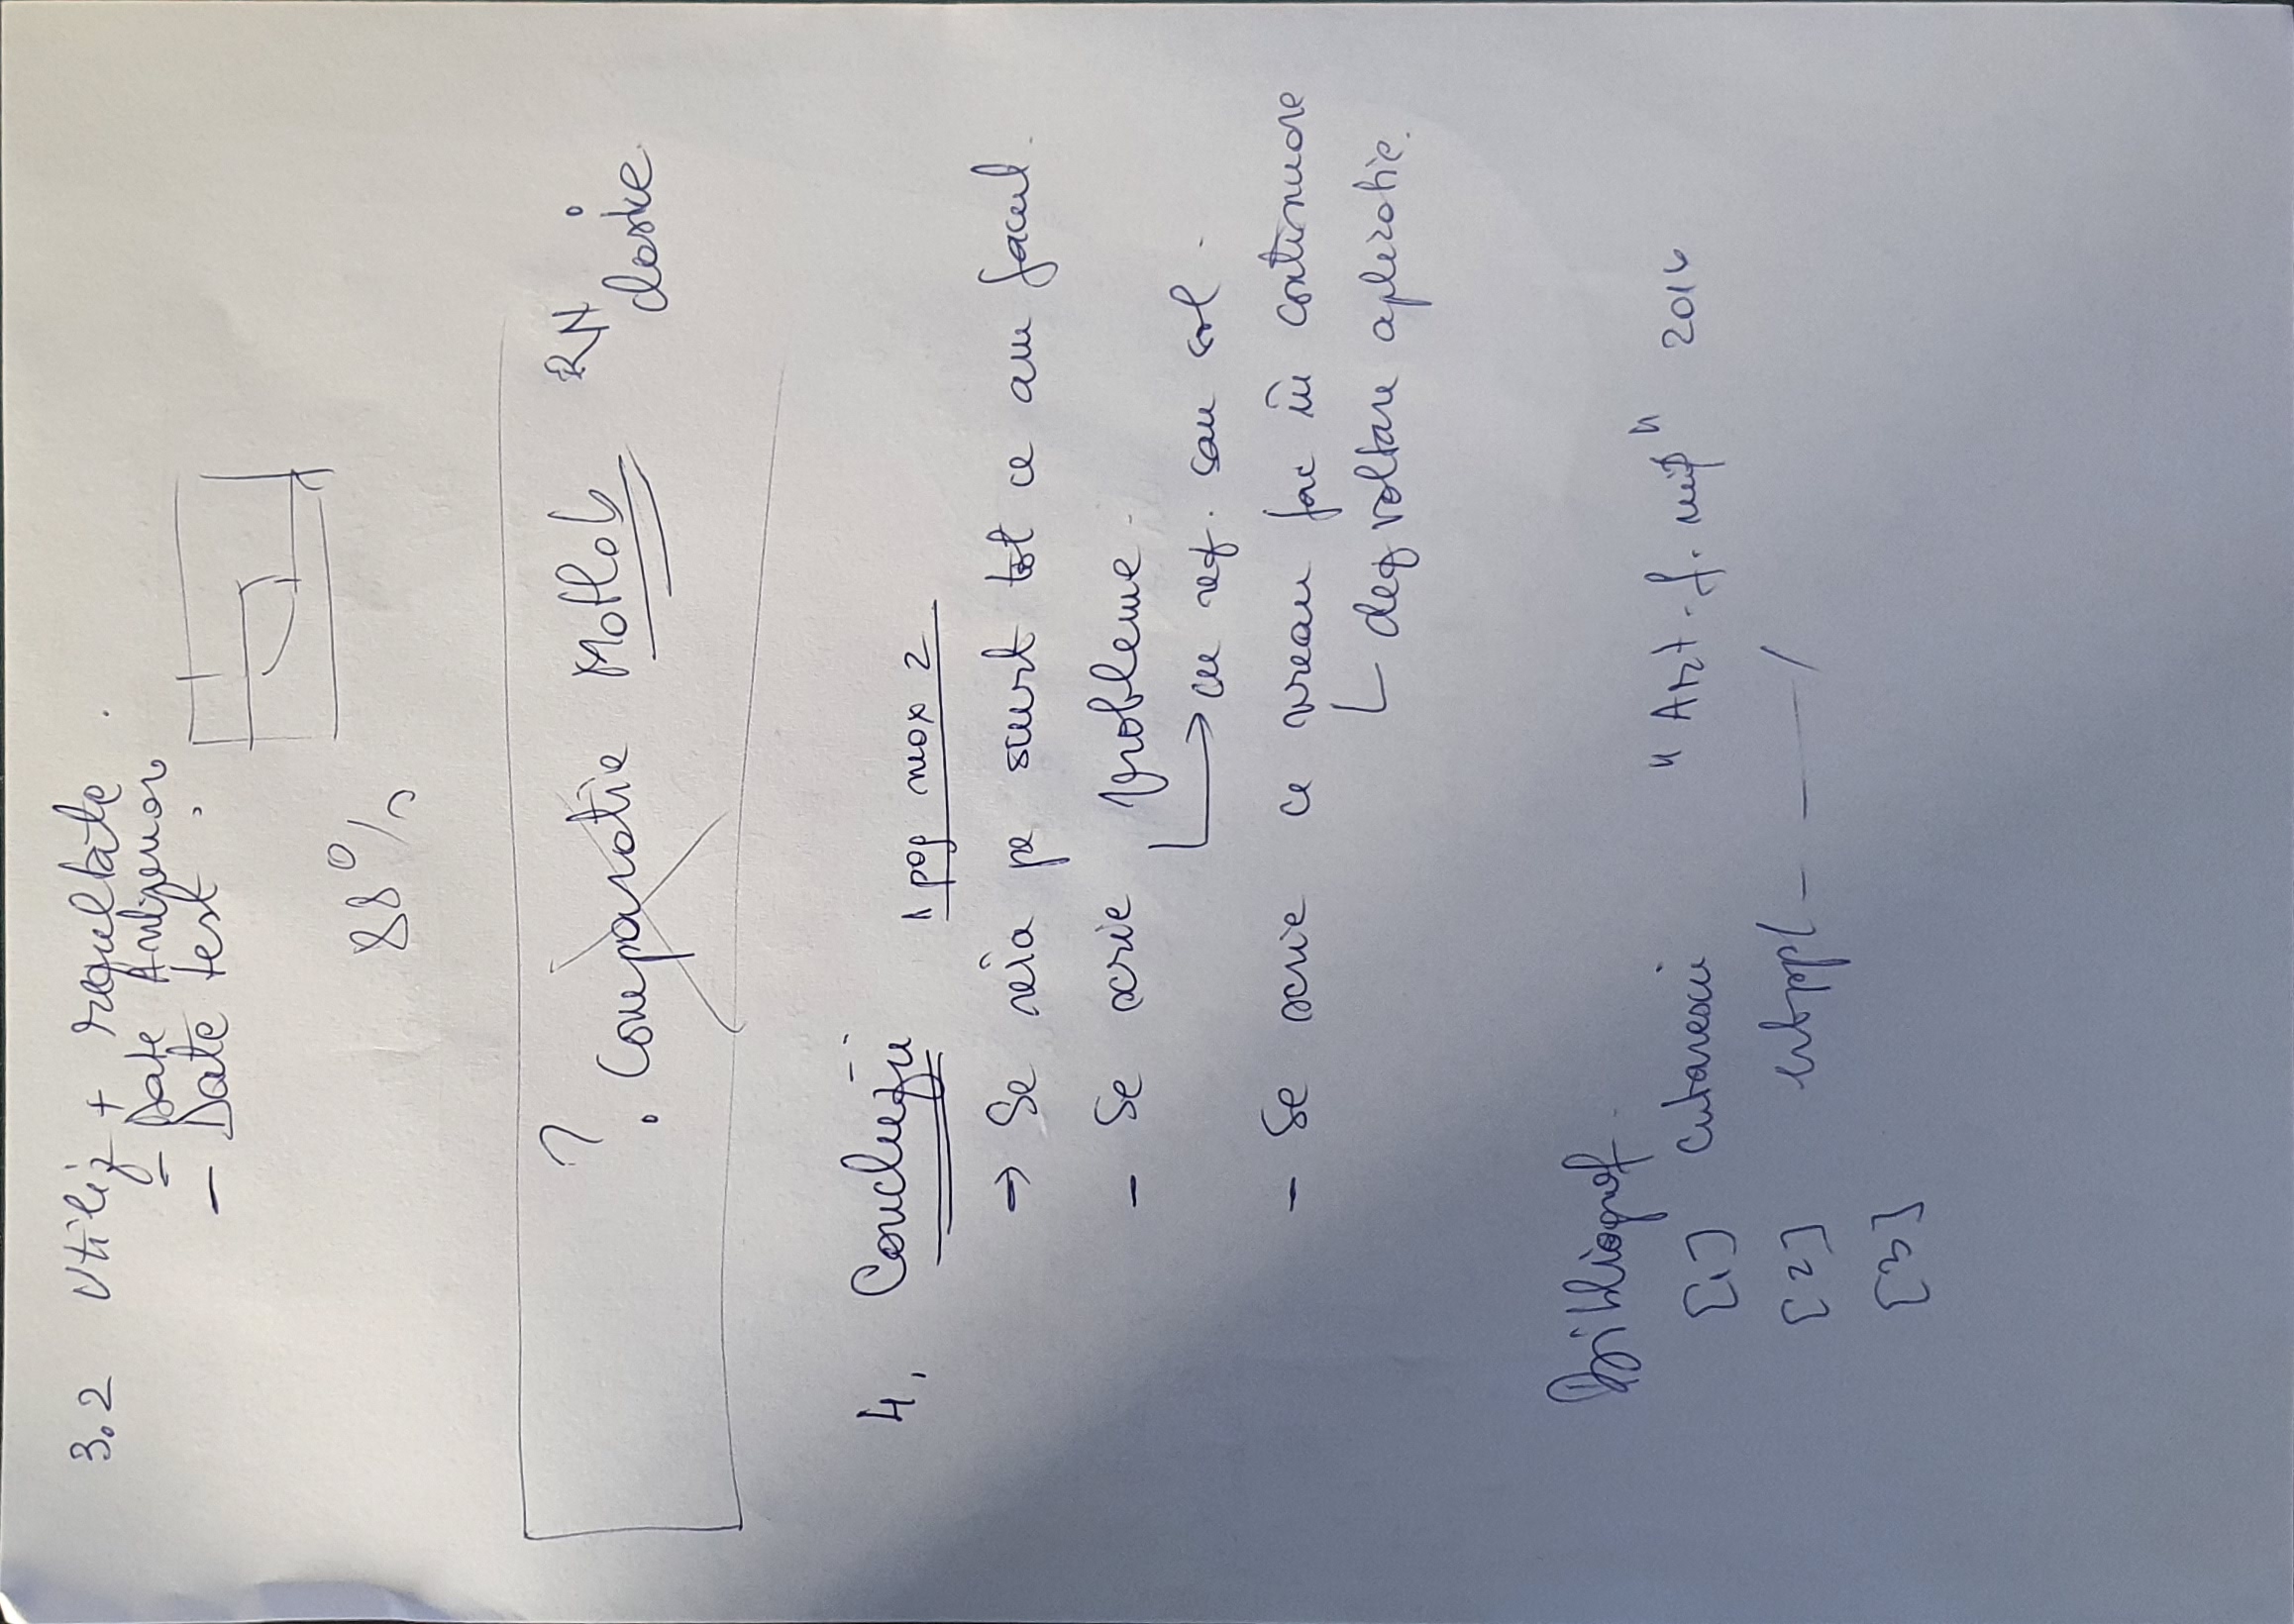 3.2 Utiliz + rezultate.
- Date Antrenor
- Date test :
88%
? Comparatie Matlab RN
clasice
4. Concluzii 1 pag max 2
→ Se reia pe scurt tot ce am facut.
- Se scrie probleme.
cu rez. sau sol.
- Se scrie ce vreau fac în continuare
dezvoltare aplicatie.
Bibliograf.
[1] Cutarescu " Art. f. " 2016
[2]
[3]